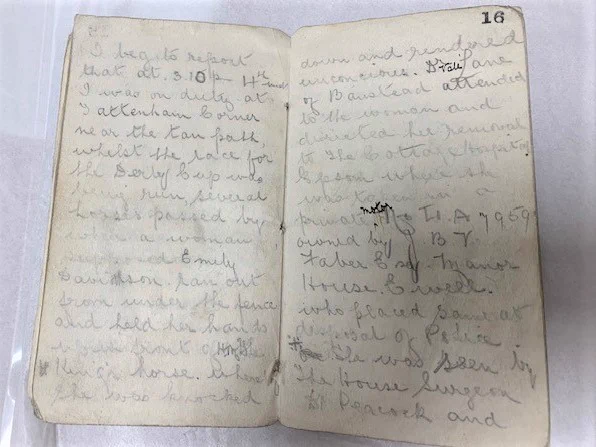 I beg to report
that at 3.10 p 4th inst
I was on duty at
Tattenham Corner
near the tan path,
whilst the race for
the Derby Cup was
being run, several
horses passed by
when a woman
supposed Emily
Davidson. ran out
from under the fence
and held her hands
up in front of HM the
King's horse. whereby
she was knocked
16
down and rendered
unconcious. Dr Vale Lane
of Banstead attended
to the woman and
directed her removal
to The Cottage Hospital
Epsom where she
was taken in a
private motor LA 7959
owned by B V.
Faber Esq. Manor
House. Ewell.
who placed same at
disposal of Police
She was seen by
The House Surgeon
Dr Peacock and